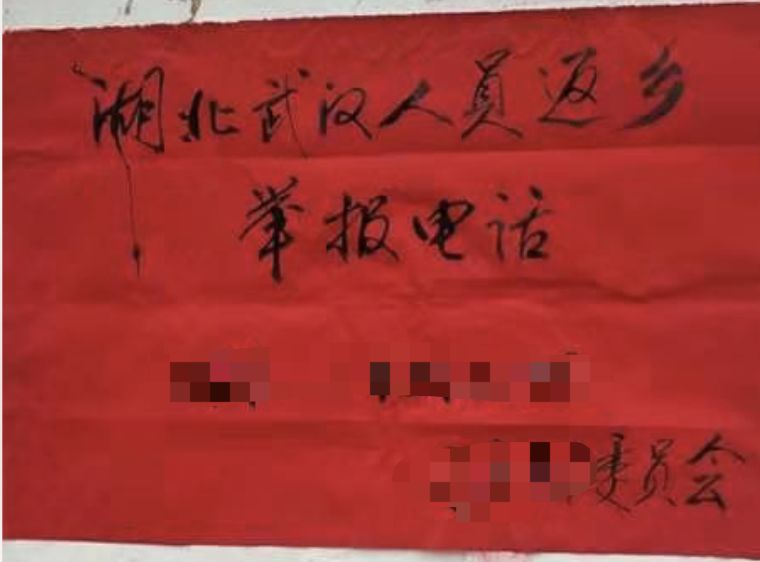 湖北武汉人员返乡
举报电话
委员会